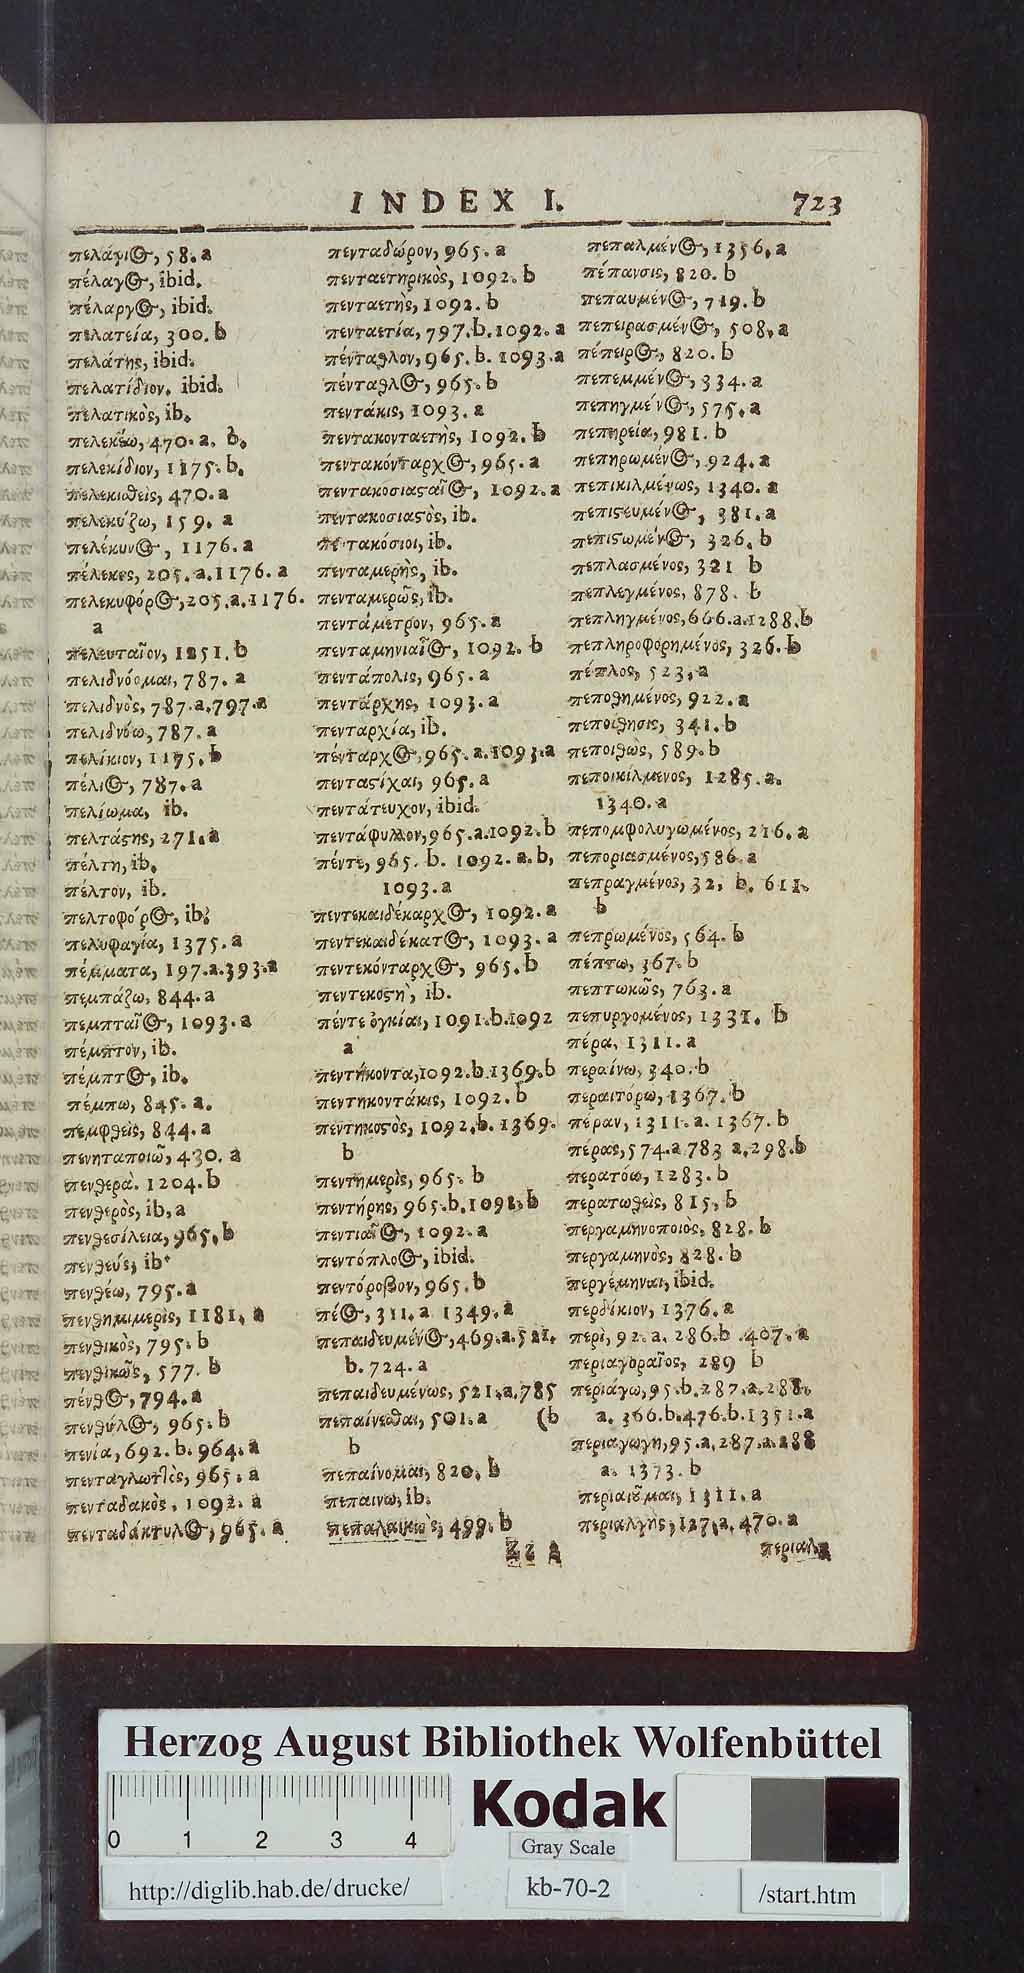 INDEX I. 723
πελάγι☉, 58. a
πέλαγ☉, ibid.
πέλαργ☉, ibid.
πελατεία, 300. b
πελάτης, ibid.
πελατίδιον, ibid.
πελατικὸς, ib.
πελεκάω, 470. a. b.
πελεκίδιον, 1175. b.
πελεκιθεὶς, 470. a
πελεκύζω, 159. a
πελέκυν☉, 1176. a
πέλεκυς, 205. a. 1176. a
πελεκυφόρ☉, 205. a. 1176.
a
πελευταῖον, 1251. b
πελιδνόομαι, 787. a
πελιδνὸς, 787. a. 797. a
πελιδνόω, 787. a
πελίκιον, 1175. b
πέλι☉, 787. a
πελίωμα, ib.
πελτάϛης, 271. a
πέλτη, ib.
πέλτον, ib.
πελτοφόρ☉, ib.
πελυφαγία, 1375. a
πέμματα, 197. a. 393. a
πεμπάζω, 844. a
πεμπταῖ☉, 1093. a
πέμπτον, ib.
πέμπτ☉, ib.
πέμπω, 845. a.
πεμφθεὶς, 844. a
πενηταποιῶ, 430. a
πενθερὰ. 1204. b
πενθερὸς, ib, a
πενθεσίλεια, 965, b
πενθεύς, ib.
πενθέω, 795. a
πενθημιμερὶς, 1181. a
πενθικὸς, 795. b
πενθικῶς, 577. b
πένθ☉, 794. a
πενθύλ☉, 965. b
πενία, 692. b. 964. a
πενταγλωττὸς, 965. a
πενταδακὸς, 1092. a
πενταδάκτυλ☉, 965. a
πενταδώρον, 965. a
πενταετηρικὸς, 1092. b
πενταετὴς, 1092. b
πενταετία, 797. b. 1092. a
πένταθλον, 965. b. 1093. a
πένταθλ☉, 965. b
πεντάκις, 1093. a
πεντακονταετὴς, 1092. b
πεντακόνταρχ☉, 965. a
πεντακοσιαϛαῖ☉, 1092. a
πεντακοσιαϛὸς, ib.
πεντακόσιοι, ib.
πενταμερὴς, ib.
πενταμερῶς, ib.
πεντάμετρον, 965. a
πενταμηνιαῖ☉, 1092. b
πεντάπολις, 965. a
πεντάρχης, 1093. a
πενταρχία, ib.
πένταρχ☉, 965. a. 1093. a
πενταϛίχαι, 965. a
πεντάτευχον, ibid.
πεντάφυλλον, 965. a. 1092. b
πέντε, 965. b. 1092. a. b,
1093. a
πεντεκαιδέκαρχ☉, 1092. a
πεντεκαιδέκατ☉, 1093. a
πεντεκόνταρχ☉, 965. b
πεντεκοϛὴ, ib.
πέντε ὀγκίαι, 1091. b. 1092
a
πεντήκοντα, 1092. b. 1369. b
πεντηκοντάκις, 1092. b
πεντηκοϛὸς, 1092. b. 1369.
b
πεντημερὶς, 965. b
πεντήρης, 965. b. 1092. b
πεντιαῖ☉, 1092. a
πεντόπλο☉, ibid.
πεντόροβον, 965. b
πέ☉, 311. a 1349. a
πεπαιδευμέν☉, 469. a. 521.
b. 724. a
πεπαιδευμένως, 521. a. 785
πεπαίνεσθαι, 501. a (b
b
πεπαίνομαι, 820. b
πεπαινω, ib.
πεπαλαικὼς, 499. b
πεπαλμέν☉, 1356. a
πέπανσις, 820. b
πεπαυμέν☉, 719. b
πεπειρασμέν☉, 508. a
πέπειρ☉, 820. b
πεπεμμέν☉, 334. a
πεπηγμέν☉, 575. a
πεπηρεία, 981. b
πεπηρωμέν☉, 924. a
πεπικιλμένως, 1340. a
πεπιϛευμέν☉, 381. a
πεπιϛωμέν☉, 326. b
πεπλασμένος, 321 b
πεπλεγμένος, 878. b
πεπληγμένος, 666. a. 1288. b
πεπληροφορημένος, 326. b
πέπλος, 523, a
πεποθημένος, 922. a
πεποίθησις, 341. b
πεποιθὼς, 589. b
πεποικίλμενος, 1285. a.
1340. a
πεπομφολυγωμένος, 216. a
πεποριασμένος, 586. a
πεπραγμένος, 32, b. 611.
b
πεπρωμένος, 564. b
πέπτω, 367. b
πεπτωκῶς, 763. a
πεπυργομένος, 1331. b
πέρα, 1311. a
περαίνω, 340. b
περαιτόρω, 1367. b
πέραν, 1311. a. 1367. b
πέρας, 574. a 783 a. 298. b
περατόω, 1283. b
περατωθεὶς, 815. b
περγαμηνοποιὸς, 828. b
περγαμηνὸς, 828. b
περγέμηναι, ibid.
περδίκιον, 1376. a
περὶ, 92. a. 286. b. 407. a
περιαγοραῖος, 289 b
περιάγω, 95. b. 287. a. 288.
a. 366. b. 476. b. 1351. a
περιαγωγη, 95. a. 287. a. 288
a. 1373. b
περιαιῦμαι, 1311. a
περιαλγὴς, 127. a. 470. a
Zz 2 περιαλ
Herzog August Bibliothek Wolfenbüttel
0 1 2 3 4
Kodak
Gray Scale
http://diglib.hab.de/drucke/
kb-70-2
/start.htm